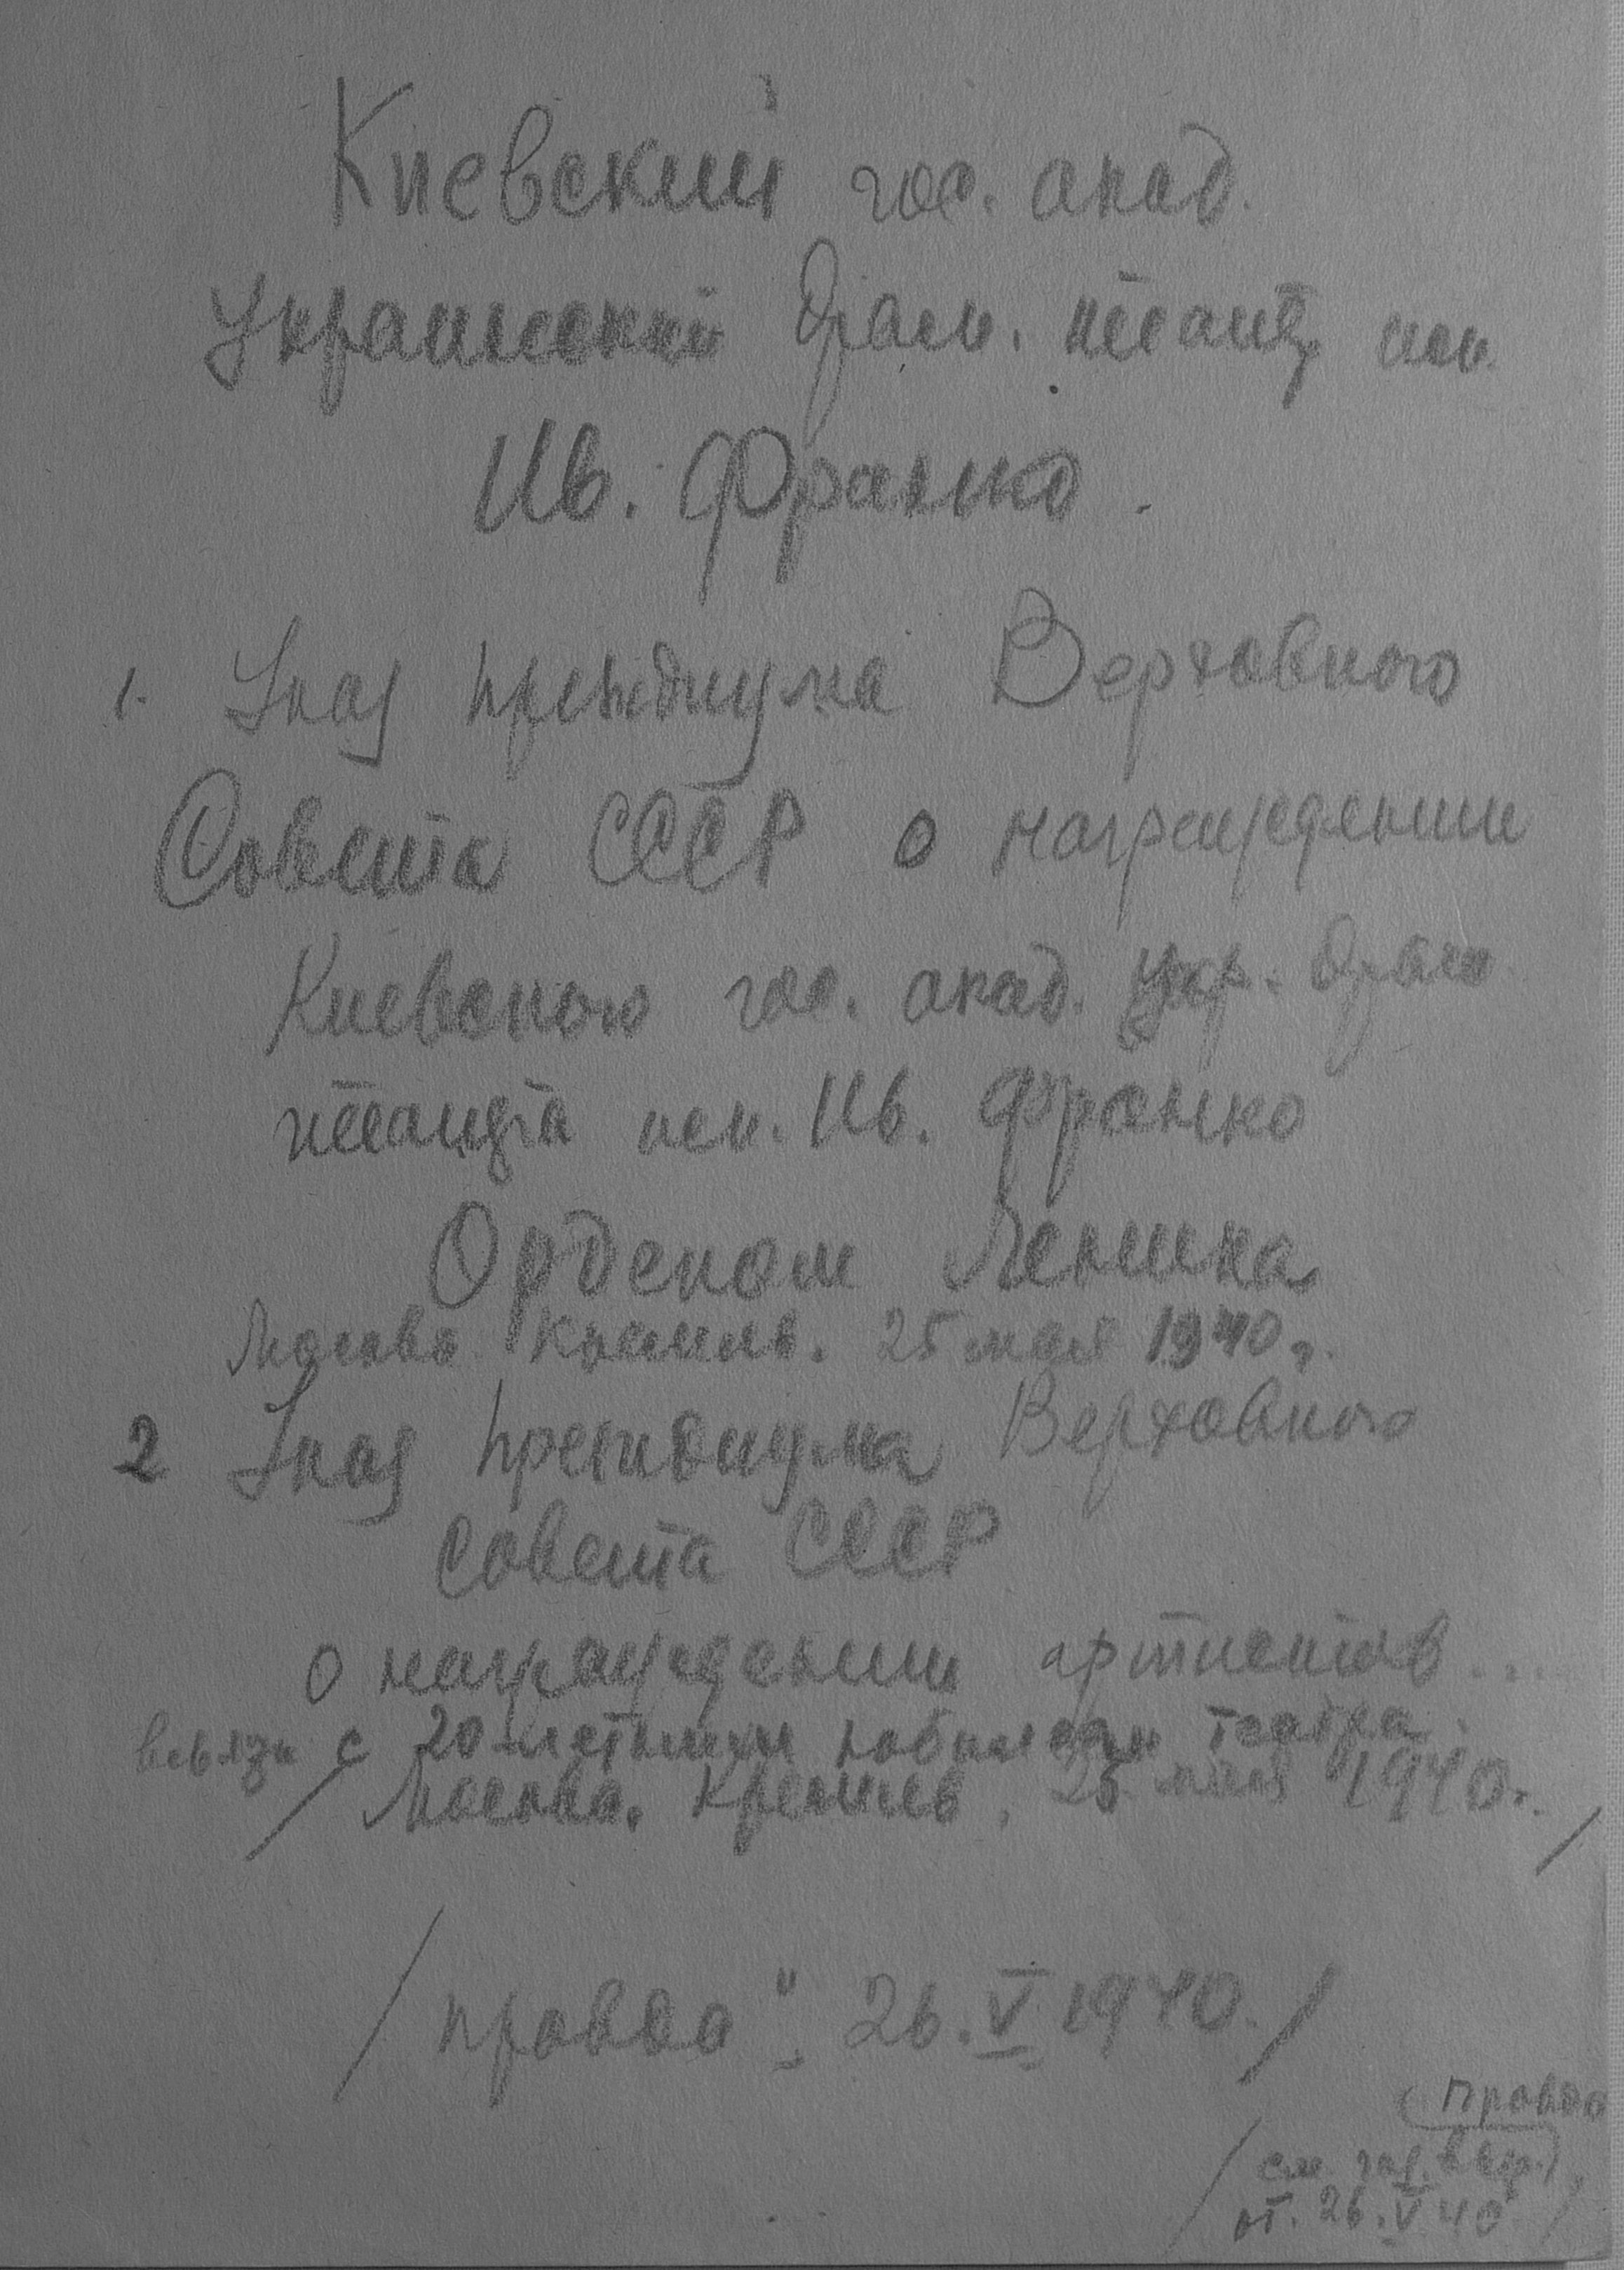 Киевский гос. акад.
Украинский драм. театр им.
Ив. Франко.
1. Указ президиума Верховного
Совета СССР о награждении
Киевского гос. акад. укр. драм
театра им. Ив. Франко
Орденом Ленина
Москва Кремль. 25 мая 1940 г.
2 Указ президиума Верховного
Совета СССР
о награждении артистов ...
в связи с 20-летним юбилеем театра.
/ Москва. Кремль. 25 мая 1940. /
/ правда" 26.V 1940. /
Правда
/ см. газ.
от. 26.V 40 /